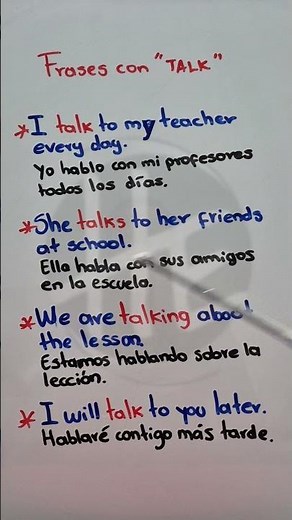 Frases con "TALK"
*I talk to my teacher
every day.
Yo hablo con mi profesores
todos los días.
*She talks to her friends
at school.
Ella habla con sus amigos
en la escuela.
*We are talking about
the lesson.
Estamos hablando sobre la
lección.
*I will talk to you later.
Hablaré contigo más tarde.